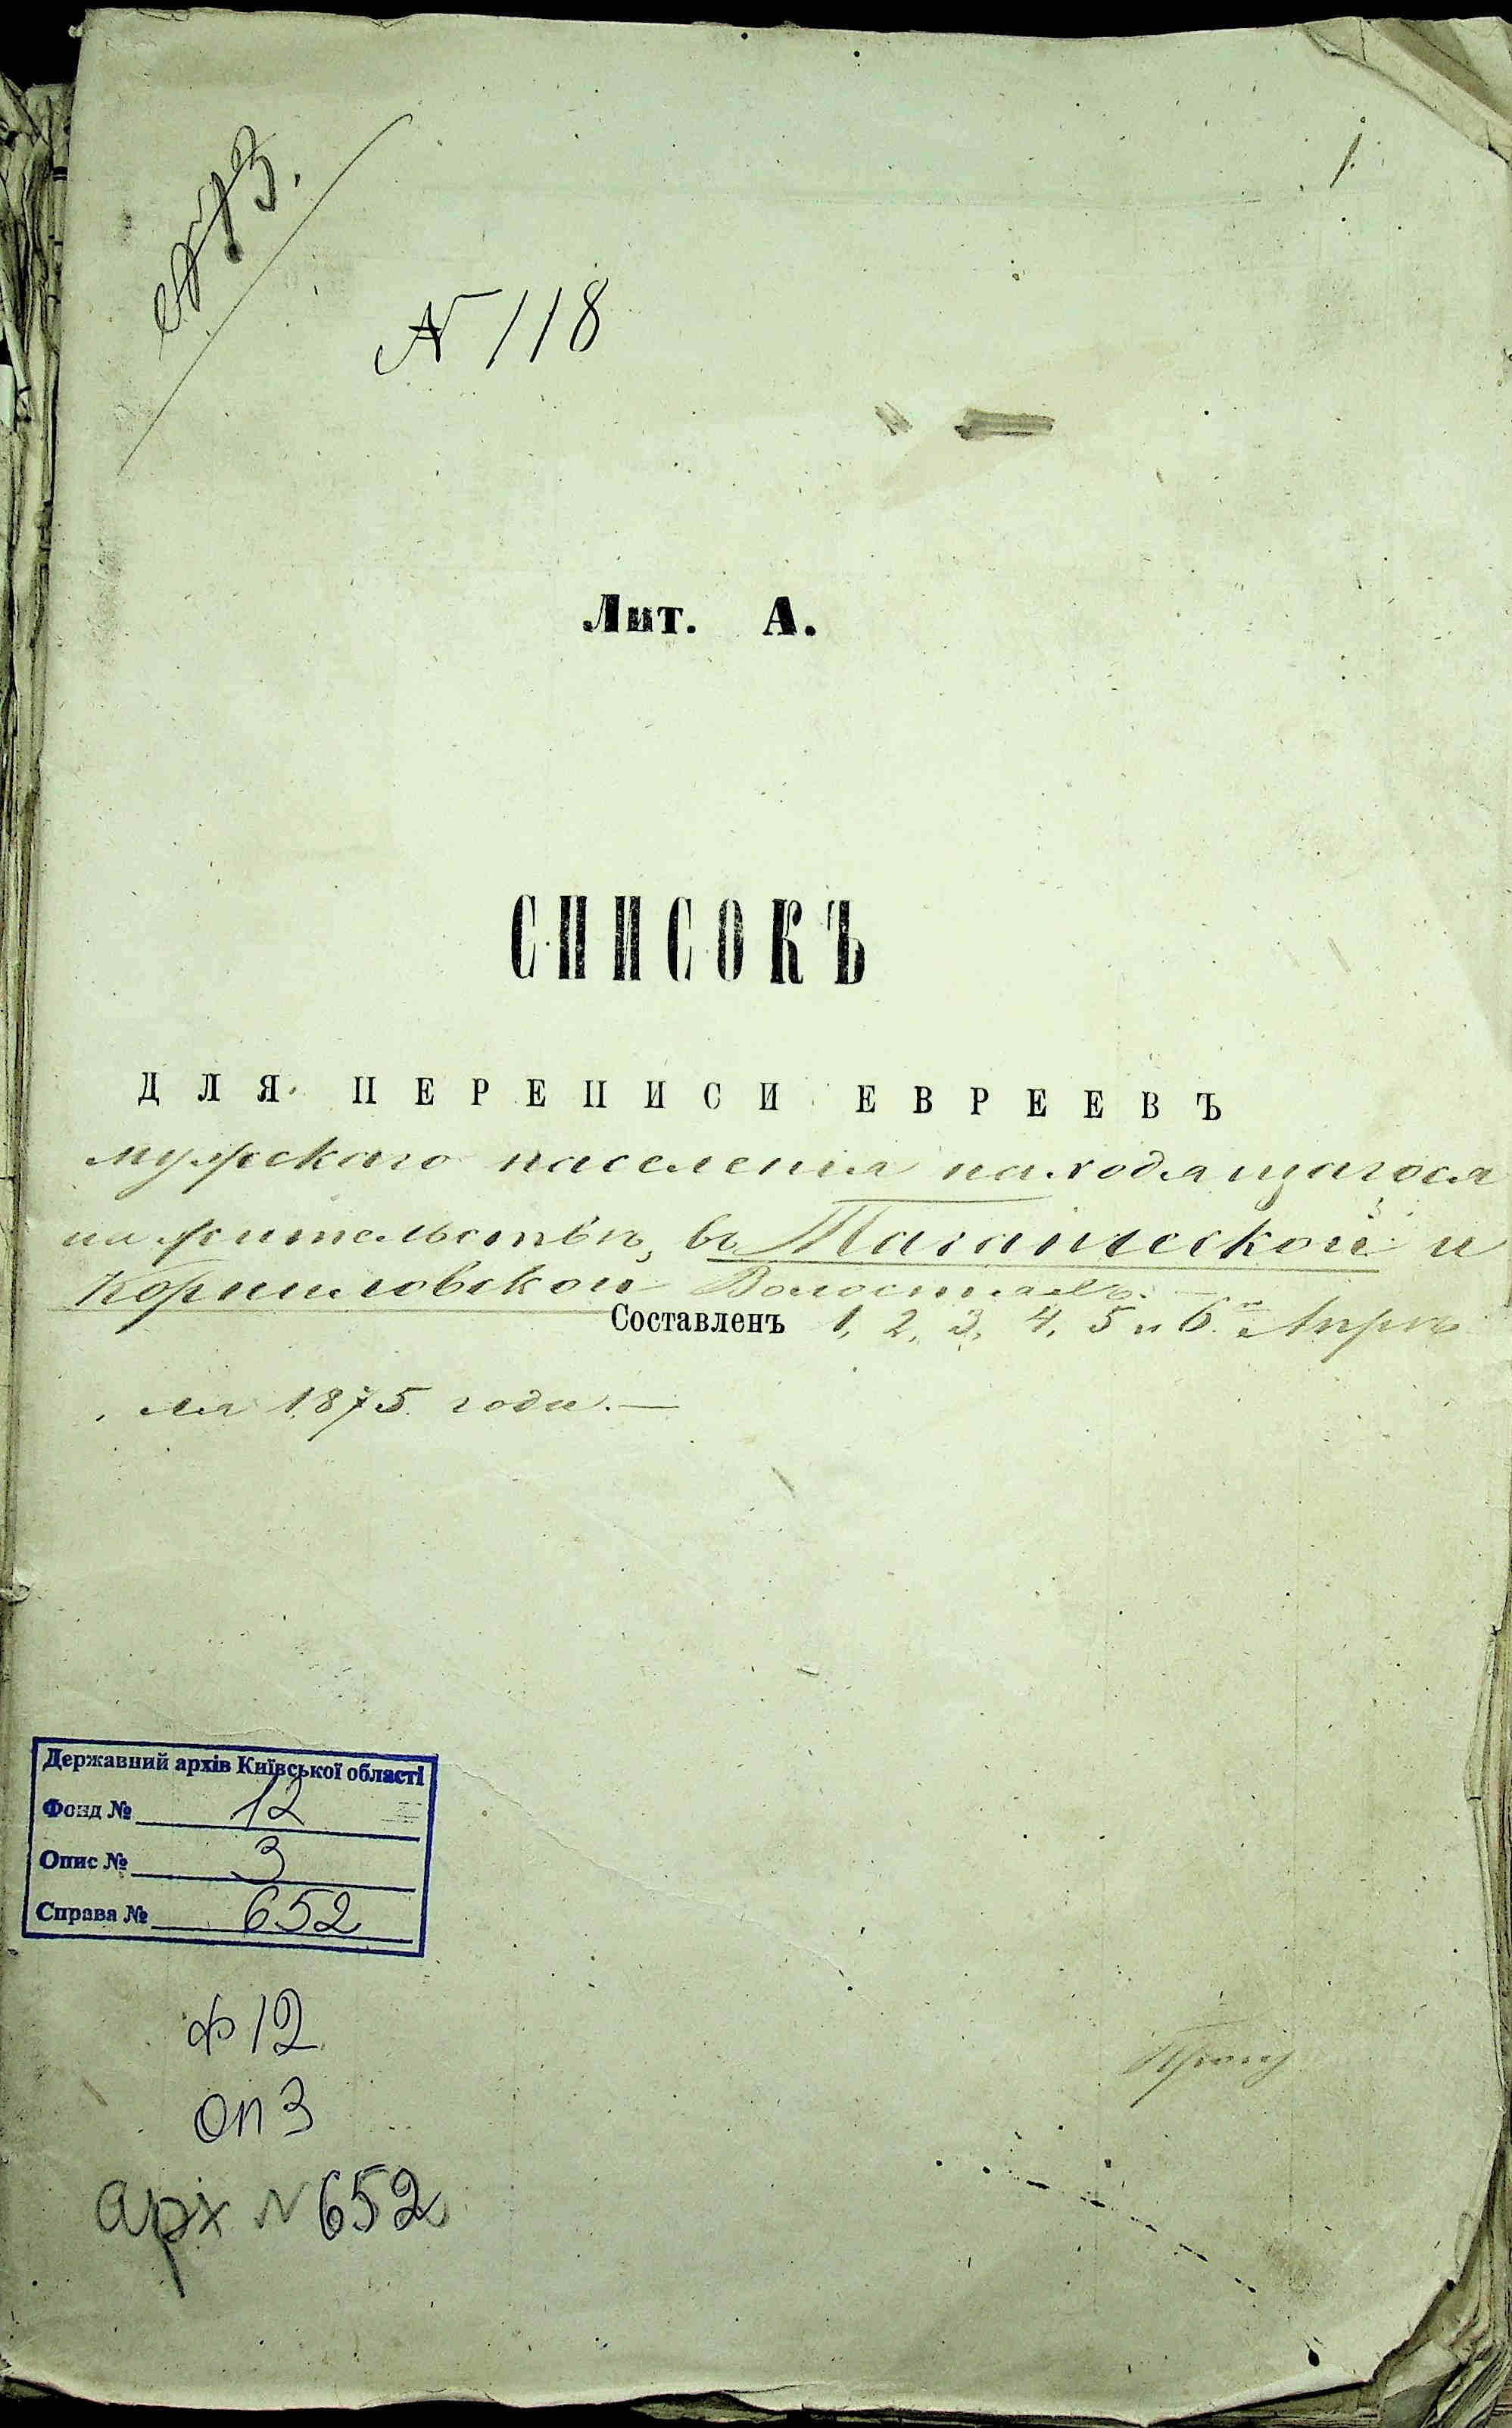 1.
№ 118
Лит. А.
СПИСОКЪ
ДЛЯ ПЕРЕПИСИ ЕВРЕЕВЪ
мужскаго населенія находящагося
на жительствѣ, въ Таганчской и
Корниловской Волостяхъ.—
Составленъ 1, 2, 3, 4, 5 и 6.го Апрѣ
ля 1875 года.—
Державний архів Київської області
Фонд № 12
Опис № 3
Справа № 652
ф 12
оп 3
арх N 652